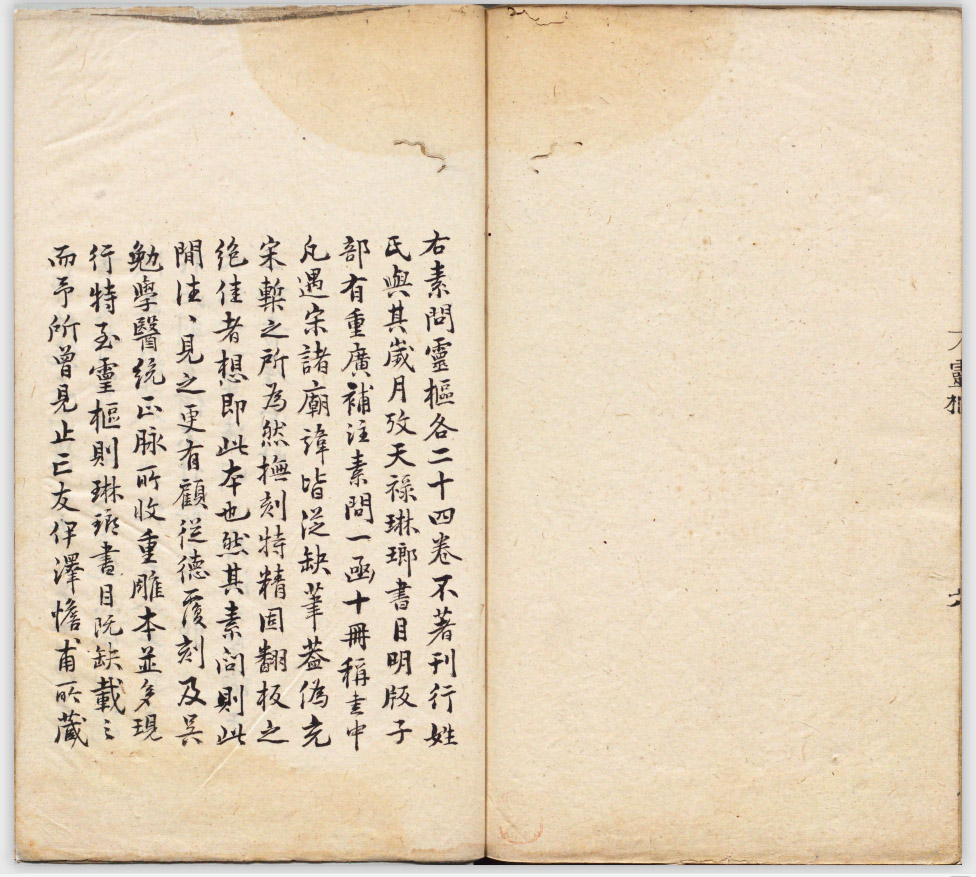 靈樞
六
右素問靈樞各二十四卷不著刊行姓
氏與其歲月攷天祿琳瑯書目明版子
部有重廣補注素問一函十冊稱書中
凡遇宋諸廟諱皆從缺筆蓋偽充
宋槧之所為然撫刻特精固翻板之
絶佳者想即此本也然其素問則此
間往〻見之更有顧從德覆刻及吳
勉學醫統正脉所收重雕本並多現
行特至靈樞則琳瑯書目既缺載之
而予所曾見止亡友伊澤憺甫所藏